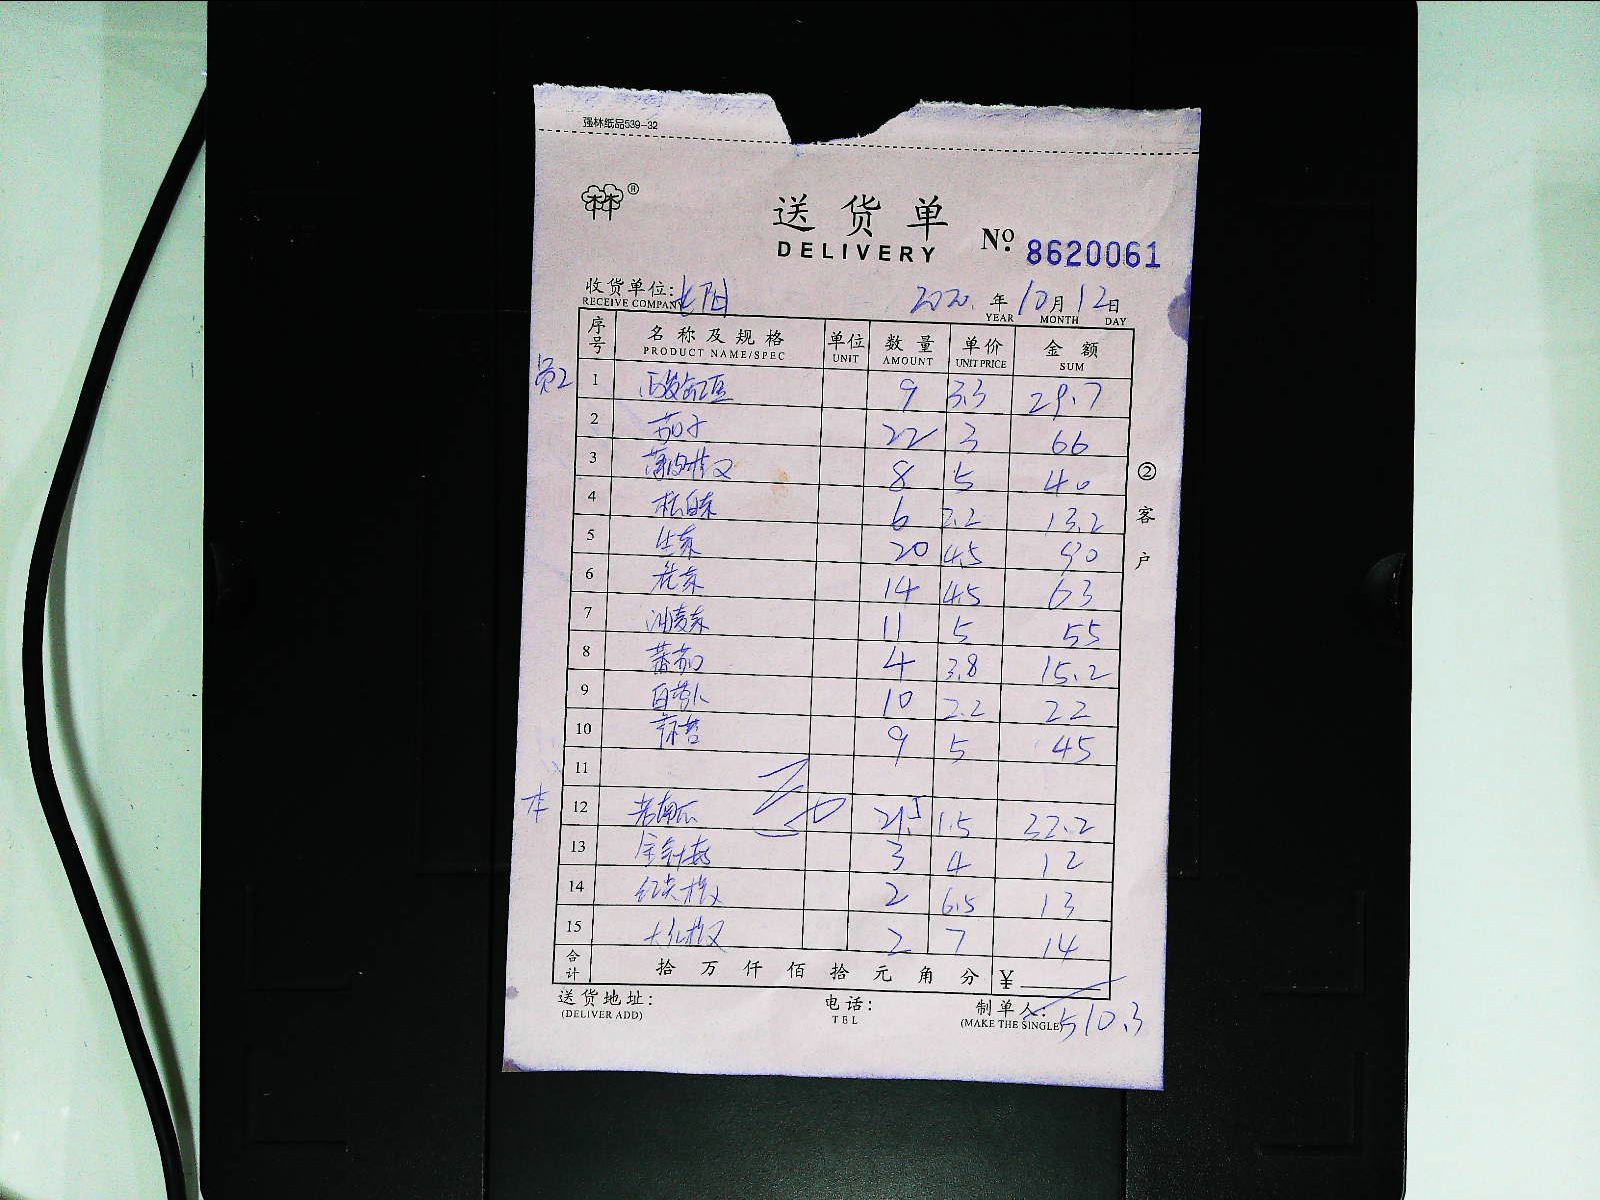 强林纸品539-32
林®
送货单
DELIVERY
No. 8620061
收货单位:
RECEIVE COMPANY
2020年10月12日
YEAR MONTH DAY
序号 名称及规格 单位 数量 单价 金额
PRODUCT NAME/SPEC UNIT AMOUNT UNIT PRICE SUM
1 9 3.3 29.7
2 茄子 22 3 66
3 薄皮椒 8 5 40
4 6 2.2 13.2
5 生菜 20 4.5 90
6 14 4.5 63
7 油麦菜 11 5 55
8 蕃茄 4 3.8 15.2
9 白萝卜 10 2.2 22
10 9 5 45
11
本 12 老南瓜 21.5 1.5 32.2
13 金针菇 3 4 12
14 红尖椒 2 6.5 13
15 大红椒 2 7 14
合计 拾万仟佰拾元角分 ¥
510.3
送货地址: 电话: 制单人:
(DELIVER ADD) TEL (MAKE THE SINGLE)
②客户